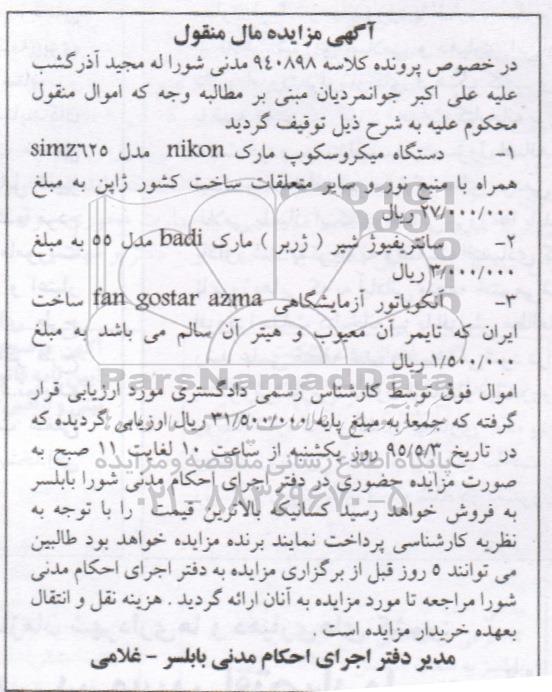 آگهی مزایده مال منقول
در خصوص پرونده کلاسه ۹٤۰۸۹۸ مدنی شورا له مجید آذرگشت
علیه علی اکبر جوانمردیان مبنی بر مطالبه وجه که اموال منقول
محکوم علیه به شرح ذیل توقیف گردید
۱- دستگاه میکروسکوپ مارک nikon مدل simz٦۲٥
همراه با منبع نور و سایر متعلقات ساخت کشور ژاپن به مبلغ
۲۷/۰۰۰/۰۰۰ ریال
۲- سانتریفیوژ شیر ( ژربر ) مارک badi مدل ٥٥ به مبلغ
۳/۰۰۰/۰۰۰ ریال
۳- انکوباتور آزمایشگاهی fan gostar azma ساخت
ایران که تایمر آن معیوب و هیتر آن سالم می باشد به مبلغ
۱/٥۰۰/۰۰۰ ریال
ParsNamadData
اموال فوق توسط کارشناس رسمی دادگستری مورد ارزیابی قرار
گرفته که جمعا به مبلغ پایه ۳۱/٥۰۰/۰۰۰ ریال ارزیابی گردیده که
در تاریخ ۹٥/٥/۳ روز یکشنبه از ساعت ۱۰ لغایت ۱۱ صبح به
پایگاه اطلاع رسانی مناقصه و مزایده
صورت مزایده حضوری در دفتر اجرای احکام مدنی شورا بابلسر
به فروش خواهد رسید کسانیکه بالاترین قیمت را با توجه به
۰۲۱-۸۸۳۴۹۶۷۰-۵
نظریه کارشناسی پرداخت نمایند برنده مزایده خواهد بود طالبین
می توانند ٥ روز قبل از برگزاری مزایده به دفتر اجرای احکام مدنی
شورا مراجعه تا مورد مزایده به آنان ارائه گردید . هزینه نقل و انتقال
بعهده خریدار مزایده است .
مدیر دفتر اجرای احکام مدنی بابلسر - غلامی